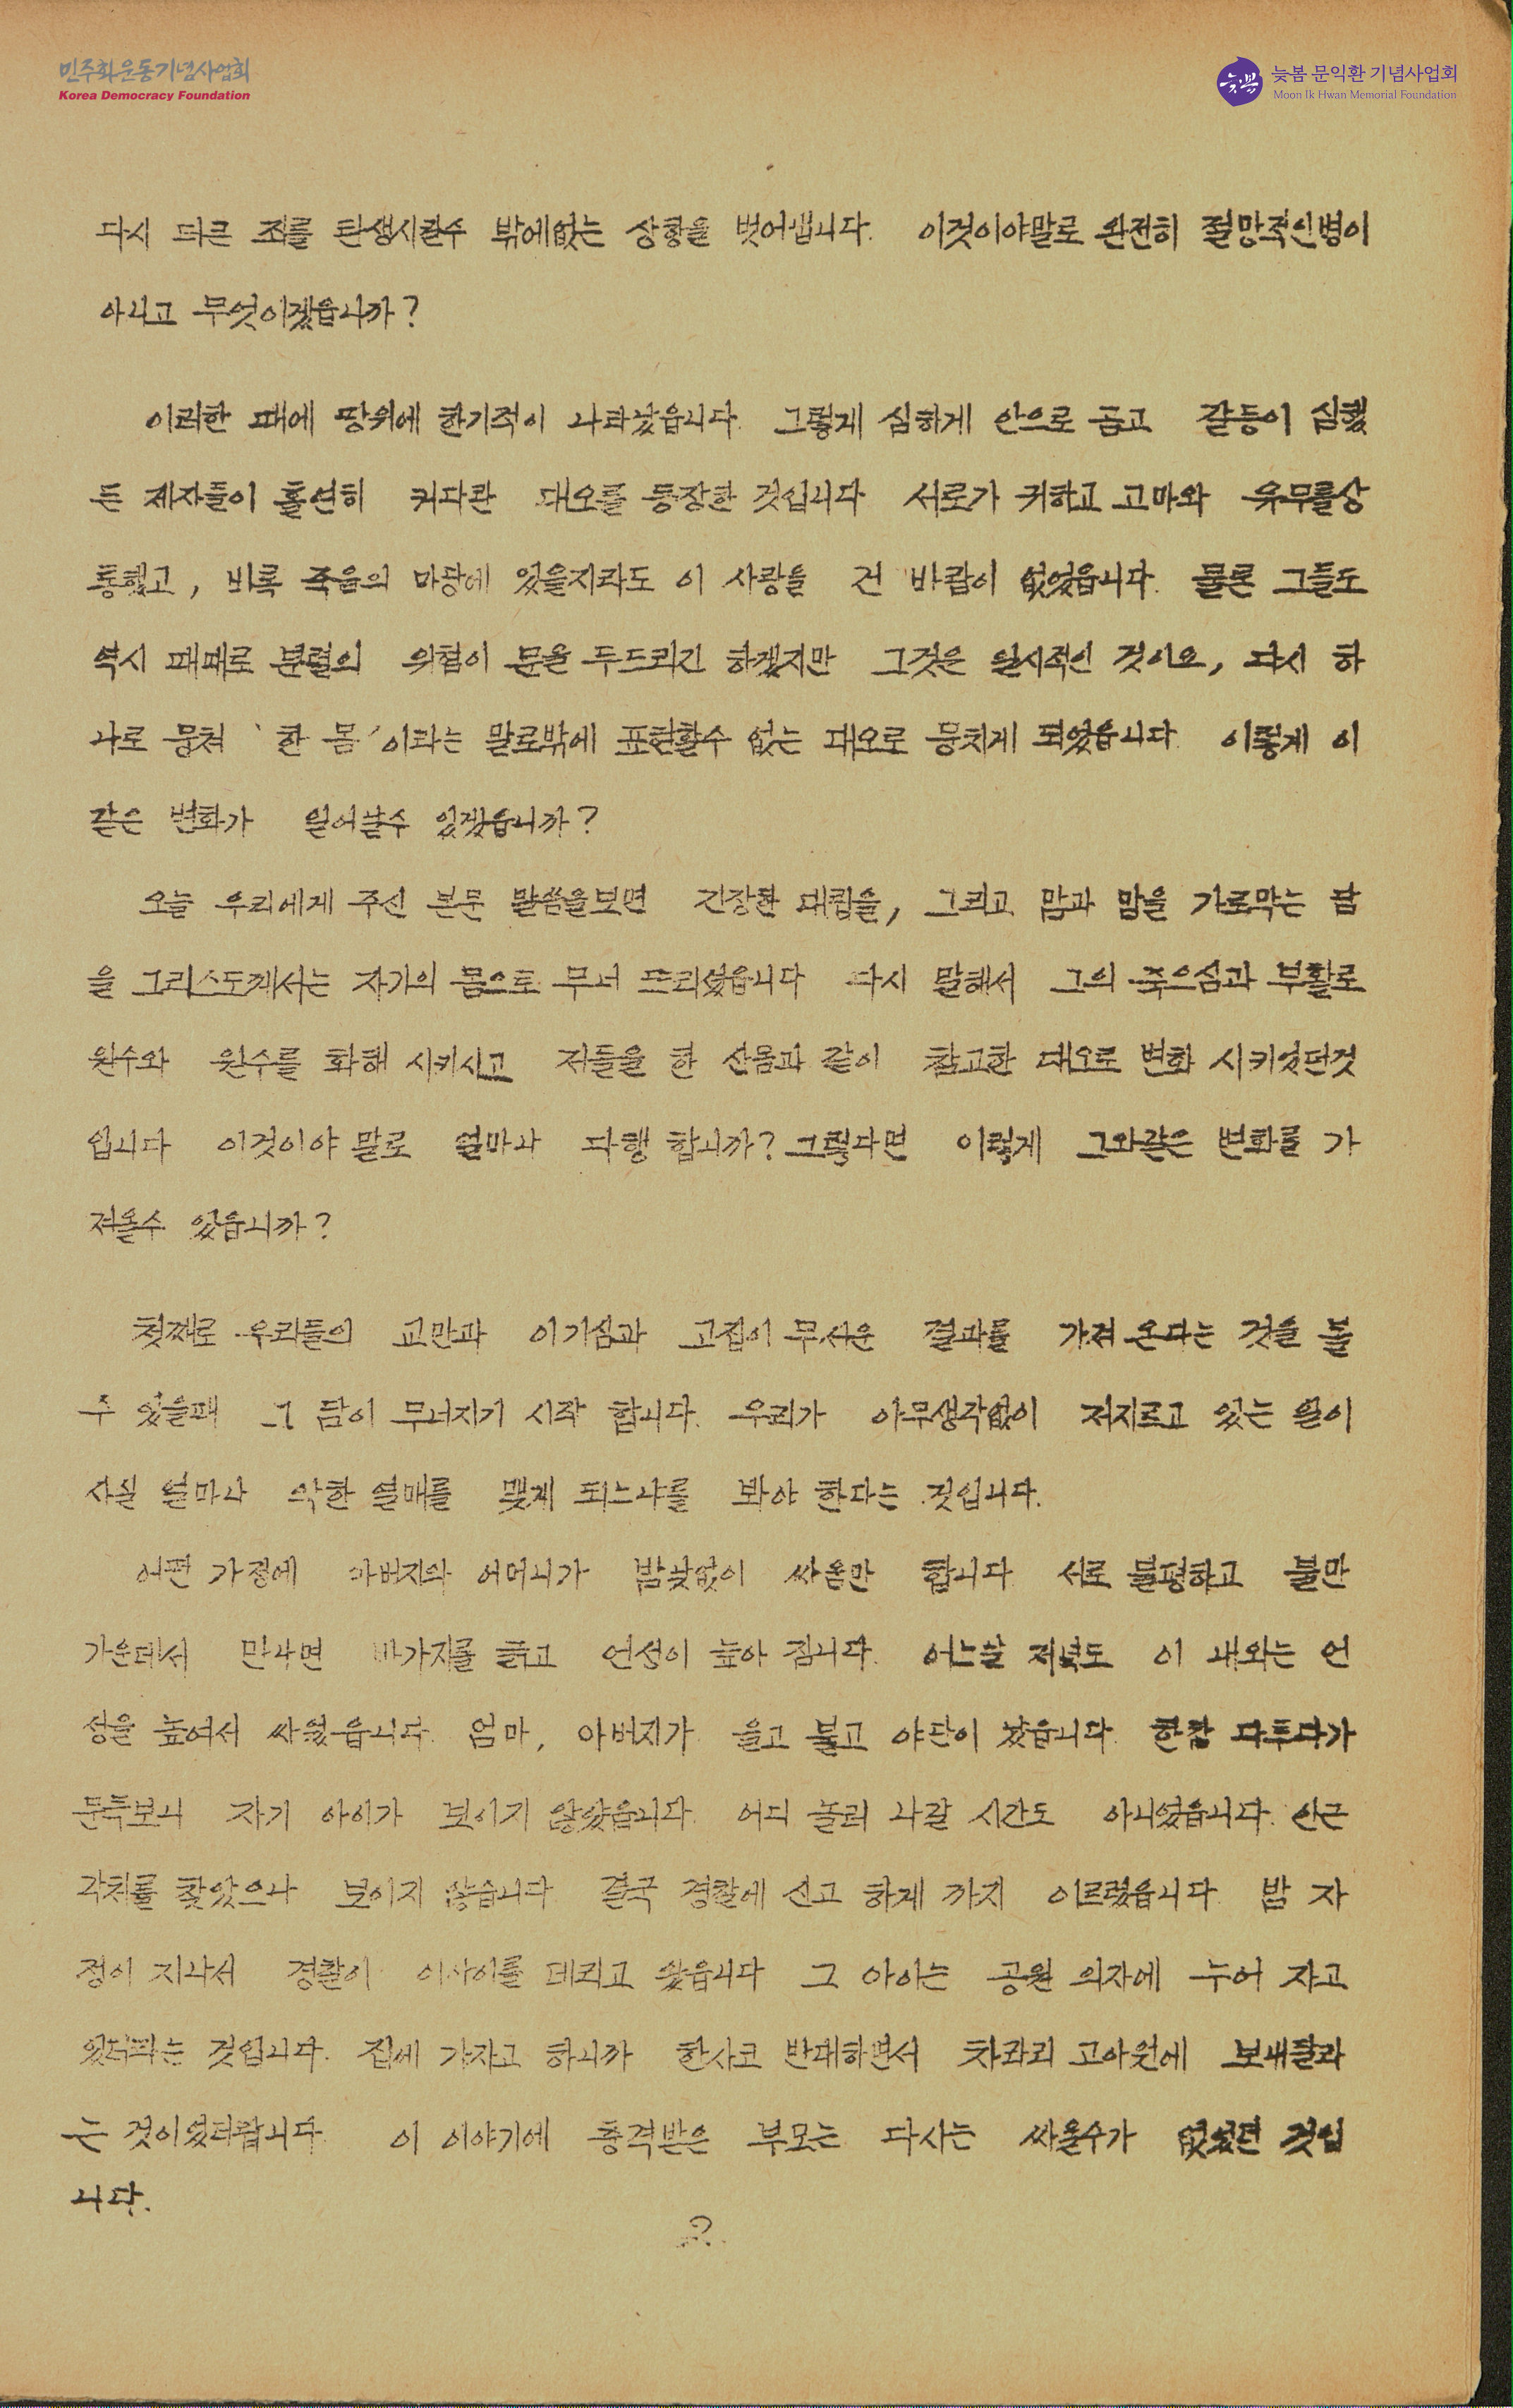 민주화운동기념사업회
Korea Democracy Foundation
늦봄 문익환 기념사업회
Moon Ik Hwan Memorial Foundation
다시 더큰 죄를 탄생시킬수 밖에없는 상황을 벗어냅니다. 이것이야말로 완전히 절망적인병이
아니고 무엇이겠읍니까?
이러한 때에 땅위에 한기적이 나타났읍니다. 그렇게 심하게 안으로 곪고 갈등이 심했
든 제자들이 홀연히 커다란 대오를 등장한 것입니다 서로가 귀하고 고마와 유무를상
통했고, 비록 죽음의 마당에 있을지라도 이 사랑을 건 바람이 없었읍니다. 물론 그들도
역시 때때로 분렬의 위협이 문을 두드리긴 하겠지만 그것은 일시적인 것이요, 다시 하
나로 뭉쳐 '한 몸'이라는 말로밖에 표현할수 없는 대오로 뭉치게 되었읍니다. 어떻게 이
같은 변화가 일어날수 있겠읍니까?
오늘 우리에게 주신 본문 말씀을보면 긴장한 대립을, 그리고 맘과 맘을 가로막는 담
을 그리스도께서는 자기의 몸으로 무너 뜨리셨읍니다 다시 말해서 그의 죽으심과 부활로
원수와 원수를 화해 시키시고 저들을 한 산몸과 같이 참고한 대오로 변화 시키었던것
입니다 이것이야 말로 얼마나 다행 합니까? 그렇다면 어떻게 그와같은 변화를 가
져올수 있읍니까?
첫째로 우리들의 교만과 이기심과 고집이 무서운 결과를 가져 온다는 것을 볼
수 있을때 그 담이 무너지기 시작 합니다. 우리가 아무생각없이 저지르고 있는 일이
사실 얼마나 악한 열매를 맺게 되느냐를 봐야 한다는 것입니다.
어떤 가정에 아버지와 어머니가 밤낮없이 싸움만 합니다 서로 불평하고 불만
가운데서 만나면 바가지를 긁고 언성이 높아 집니다. 어느날 저녁도 이 내외는 언
성을 높여서 싸웠읍니다. 엄마, 아버지가 울고 불고 야단이 났읍니다. 한참 다투다가
문득보니 자기 아이가 보이지 않았읍니다. 어디 놀러 나갈 시간도 아니었읍니다. 인근
각처를 찾았으나 보이지 않습니다 결국 경찰에 신고 하게 까지 이르렀읍니다. 밤 자
정이 지나서 경찰이 어린이를 데리고 왔읍니다 그 아이는 공원 의자에 누어 자고
있더라는 것입니다. 집에 가자고 하니까 한사코 반대하면서 차라리 고아원에 보내달라
는 것이었더랍니다. 이 이야기에 충격받은 부모는 다시는 싸울수가 없었던 것입
니다.